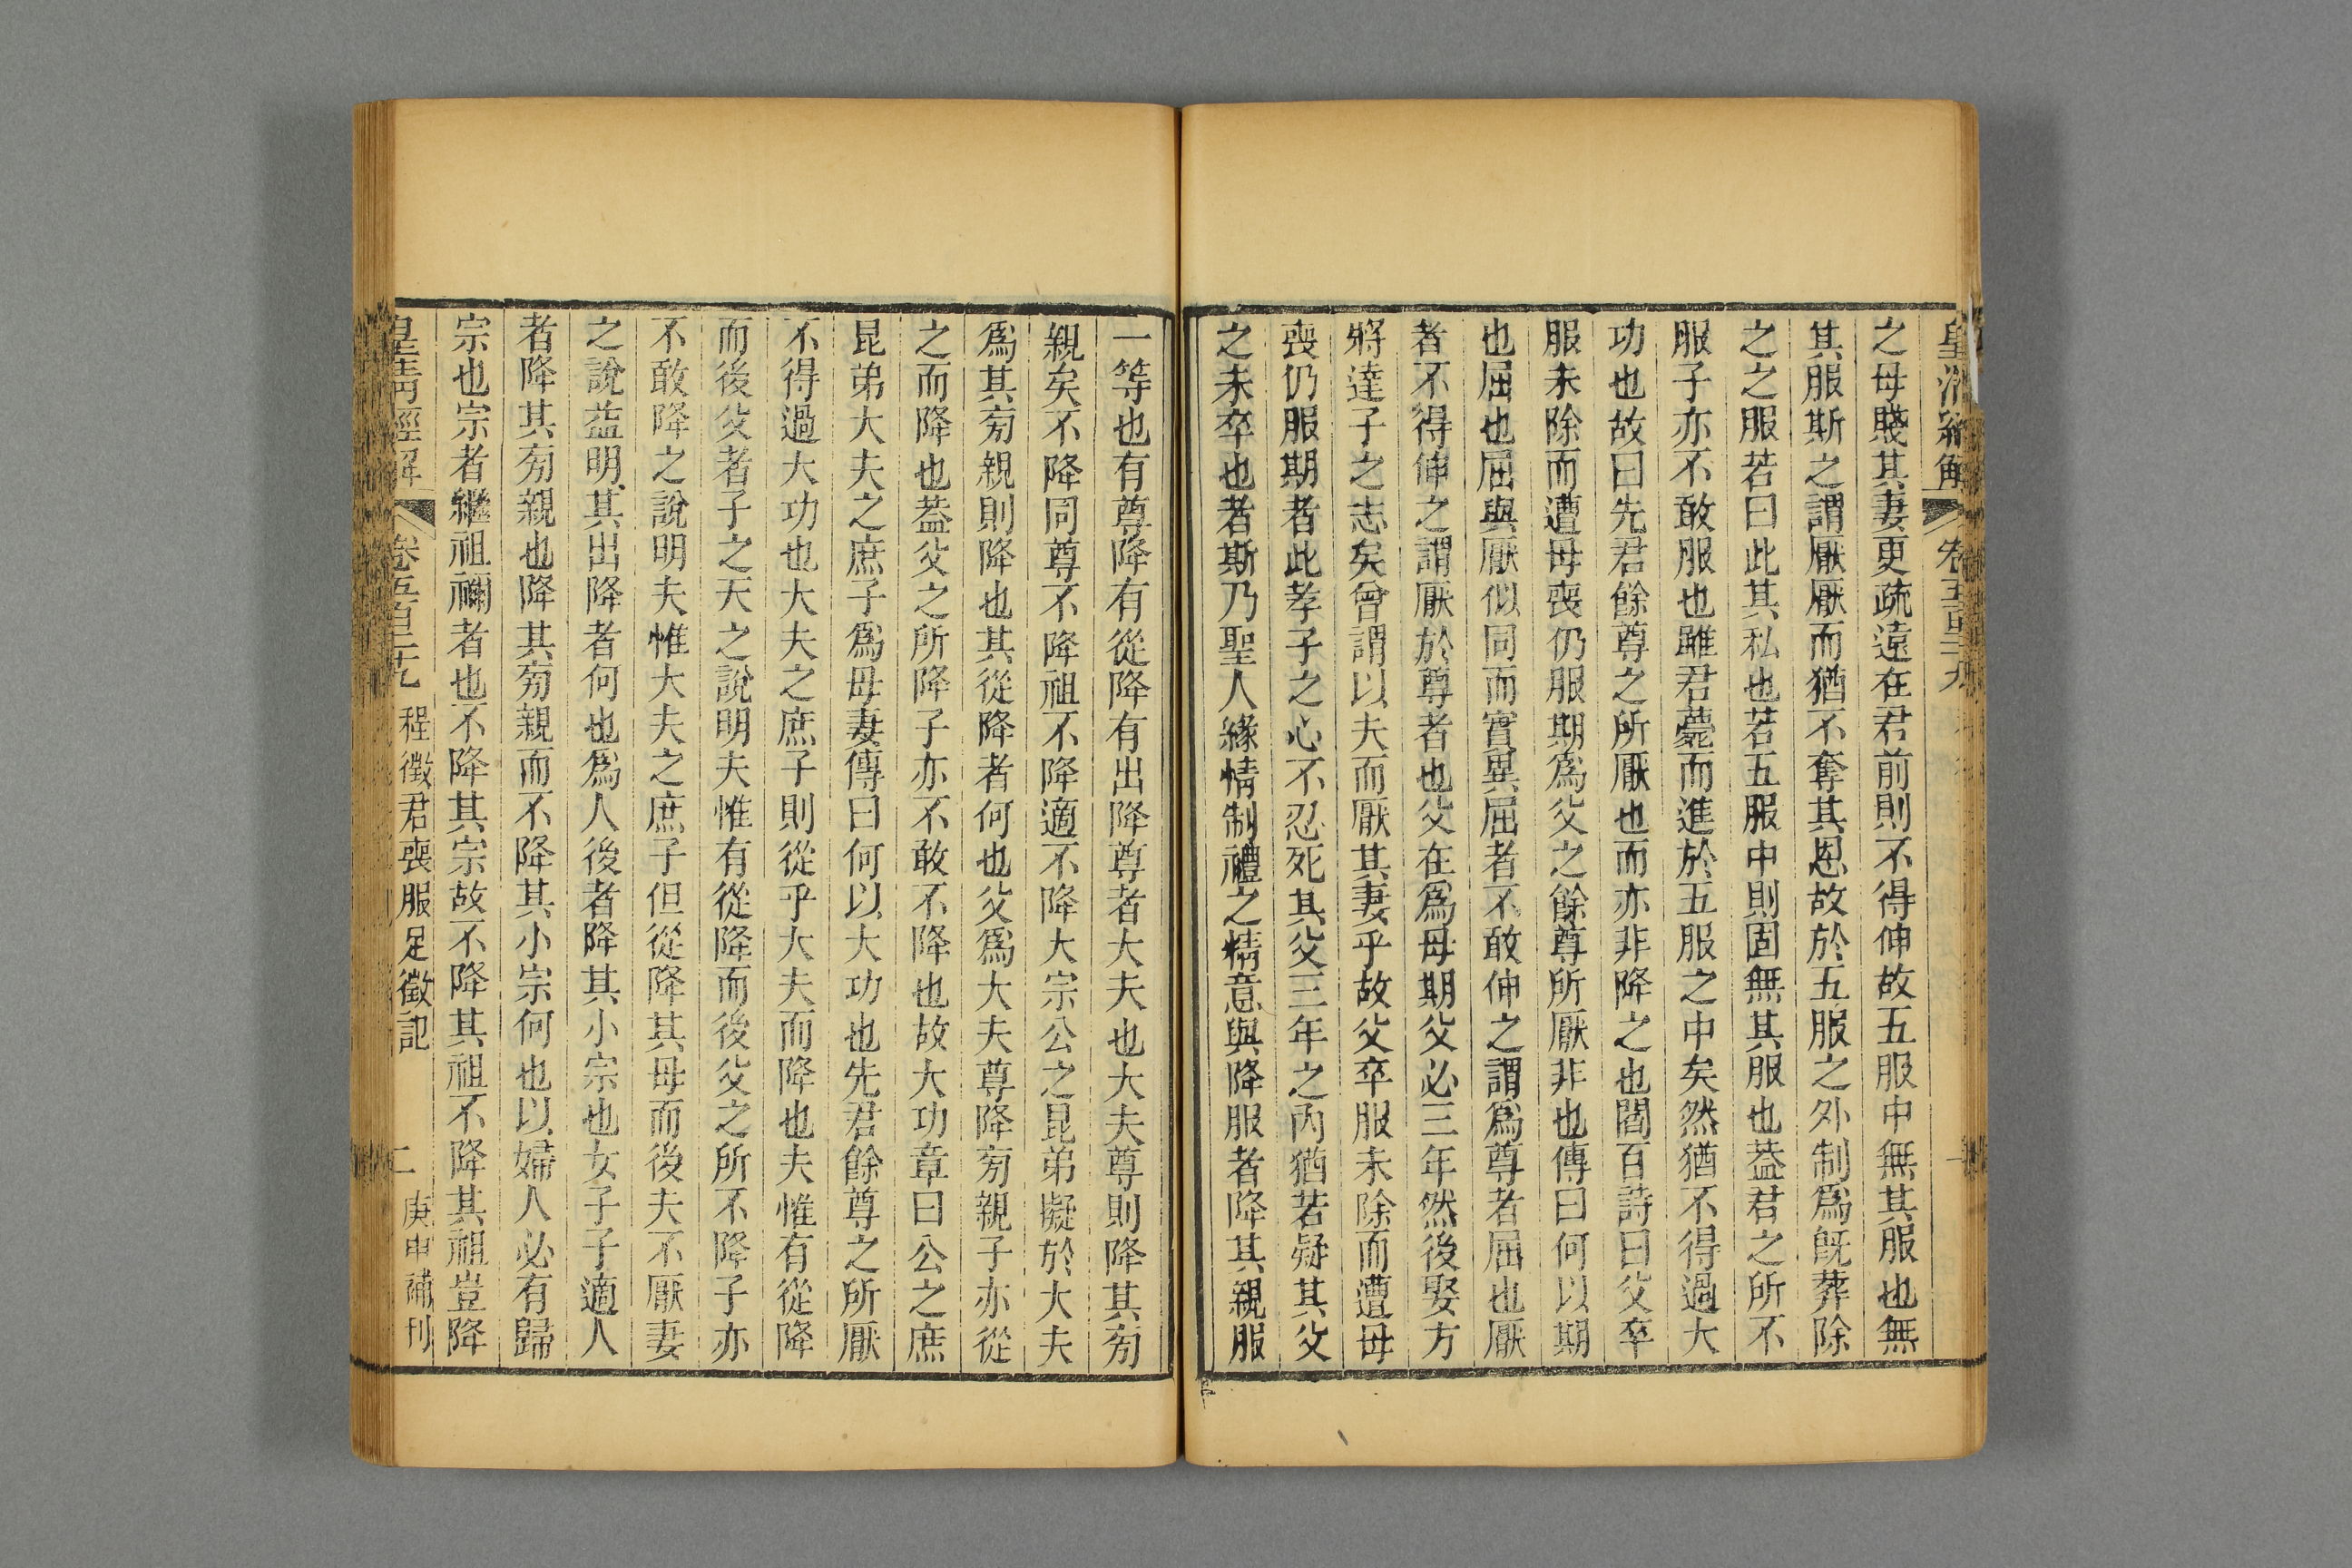 皇清經解 卷五百二十九
之母賤其妻更疏遠在君前則不得伸故五服中無其服也無
其服斯之謂厭厭而猶不奪其恩故於五服之外制爲旣葬除
之之服若曰此其私也若五服中則固無其服也葢君之所不
服子亦不敢服也雖君薨而進於五服之中矣然猶不得過大
功也故曰先君餘尊之所厭也而亦非降之也閻百詩曰父卒
服未除而遭母喪仍服期爲父之餘尊所厭非也傳曰何以期
也屈也屈與厭似同而實異屈者不敢伸之謂爲尊者屈也厭
者不得伸之謂厭於尊者也父在爲母期父必三年然後娶方
將達子之志矣曾謂以夫而厭其妻乎故父卒服未除而遭母
喪仍服期者此孝子之心不忍死其父三年之內猶若疑其父
之未卒也者斯乃聖人緣情制禮之精意與降服者降其親服
一等也有尊降有從降有出降尊者大夫也大夫尊則降其旁
親矣不降同尊不降祖不降適不降大宗公之昆弟擬於大夫
爲其旁親則降也其從降者何也父爲大夫尊降旁親子亦從
之而降也葢父之所降子亦不敢不降也故大功章曰公之庶
昆弟大夫之庶子爲母妻傳曰何以大功也先君餘尊之所厭
不得過大功也大夫之庶子則從乎大夫而降也夫惟有從降
而後父者子之天之說明夫惟有從降而後父之所不降子亦
不敢降之說明夫惟大夫之庶子但從降其母而後夫不厭妻
之說益明其出降者何也爲人後者降其小宗也女子子適人
者降其旁親也降其旁親而不降其小宗何也以婦人必有歸
宗也宗者繼祖禰者也不降其宗故不降其祖不降其祖豈降
皇清經解 卷五百二十九 程徵君喪服足徵記 二 庚申補刊